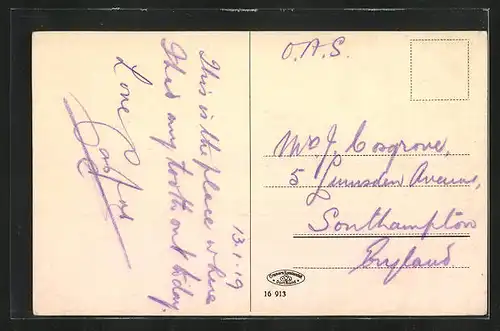 13.1.19
This is the place where
I had my tooth out today.
Love
O.A.S.
Mr J. Cosgrove,
5 Lumsden Avenue,
Southampton
England
16 913